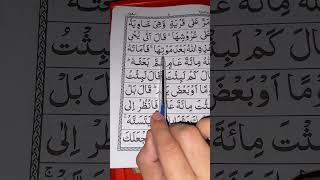 مَرَّ عَلٰى قَرْيَةٍ وَّهِىَ خَاوِيَةٌ
عَلٰى عُرُوْشِهَا ۚ قَالَ اَنّٰى يُحْىٖ
هٰذِهِ اللّٰهُ بَعْدَ مَوْتِهَا ۚ فَاَمَاتَهُ
اللّٰهُ مِائَةَ عَامٍ ثُمَّ بَعَثَهٗ ؕ
قَالَ كَمْ لَبِثْتَ ؕ قَالَ لَبِثْتُ
يَوْمًا اَوْ بَعْضَ قَالَ بَلْ
لَّبِثْتَ مِائَةَ فَانْظُرْ اِلٰى
يَتَسَنَّهْ ۚ